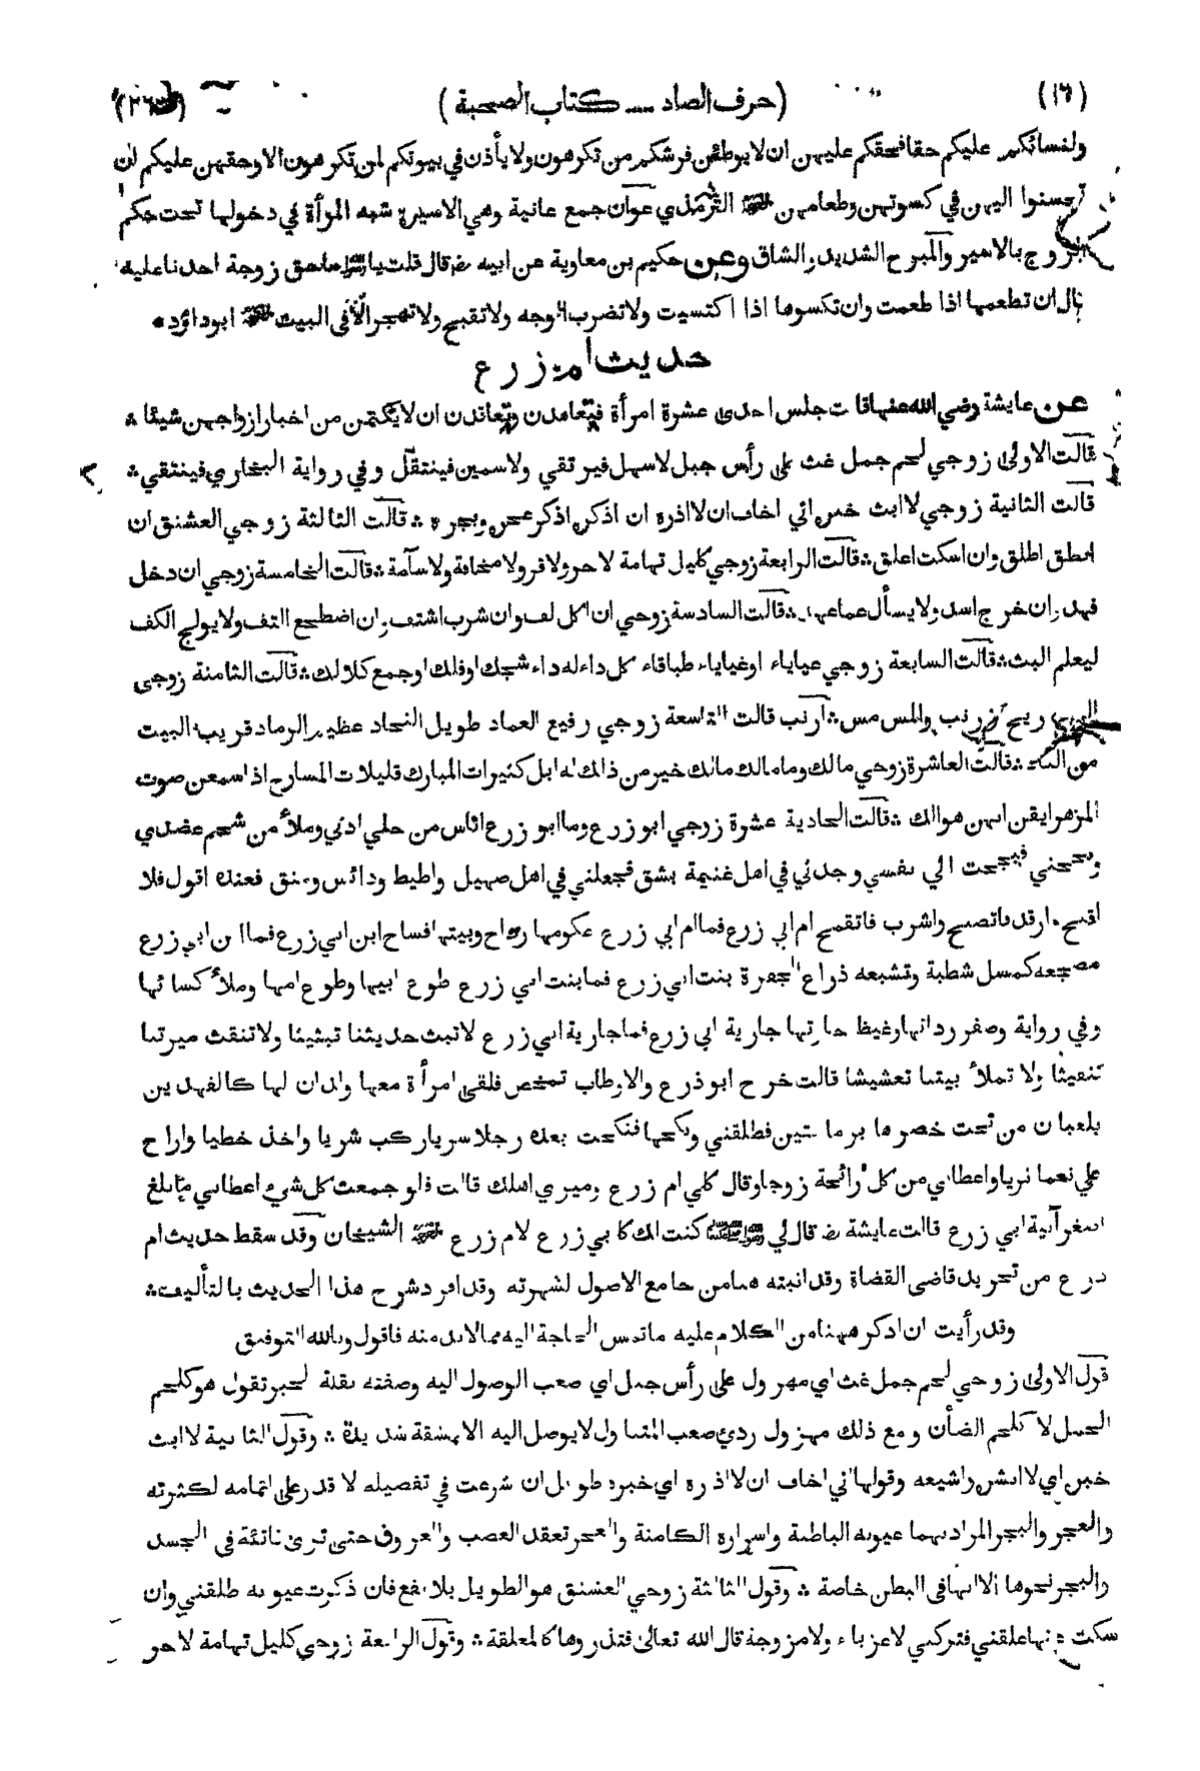 (١٦) (حرف الصاد ـــ كتاب الصحبة)
ولنسائكم عليكم حقا فحقكم عليهن ان لا يوطئن فرشكم من تكرهون ولا يأذن في بيوتكم لمن تكرهون الا وحقهن عليكم ان
تحسنوا اليهن في كسوتهن وطعامهن الترمذي عوان جمع عانية وهي الاسيرة شبه المرأة في دخولها تحت حكم
الزوج بالاسير والمبرح الشديد والشاق وعن حكيم بن معاوية عن ابيه رضـ قال قلت يا رسول الله ما حق زوجة احدنا عليه
قال ان تطعمها اذا طعمت وان تكسوها اذا اكتسيت ولا تضرب الوجه ولا تقبح ولا تهجر الا في البيت ابو داؤد •
حديث ام زرع
عن عايشة رضي الله عنها قالت جلس احدى عشرة امرأة فتعاهدن وتعاقدن ان لا يكتمن من اخبار ازواجهن شيئا ؞
قالت الاولى زوجي لحم جمل غث على رأس جبل لا سهل فيرتقي ولا سمين فينتقل وفي رواية البخاري فينتقي ؞
قالت الثانية زوجي لا ابث خبره اني اخاف ان لا اذره ان اذكره اذكر عجره وبجره ؞ قالت الثالثة زوجي العشنق ان
انطق اطلق وان اسكت اعلق ؞ قالت الرابعة زوجي كليل تهامة لا حر ولا قر ولا مخافة ولا سآمة ؞ قالت الخامسة زوجي ان دخل
فهد وان خرج اسد ولا يسأل عما عهد ؞ قالت السادسة زوجي ان اكل لف وان شرب اشتف وان اضطجع التف ولا يولج الكف
ليعلم البث ؞ قالت السابعة زوجي عياياء او غياياء طباقاء كل داء له داء شجك او فلك او جمع كلا لك ؞ قالت الثامنة زوجي
الريح ريح زرنب والمس مس ارنب قالت التاسعة زوجي رفيع العماد طويل النجاد عظيم الرماد قريب البيت
من الناد ؞ قالت العاشرة زوجي مالك وما مالك مالك خير من ذالك له ابل كثيرات المبارك قليلات المسارح اذا سمعن صوت
المزهر ايقن انهن هوالك ؞ قالت الحادية عشرة زوجي ابو زرع وما ابو زرع اناس من حلي اذني وملأ من شحم عضدي
وبجحني فبجحت الي نفسي وجدني في اهل غنيمة بشق فجعلني في اهل صهيل واطيط ودائس ومنق فعنده اقول فلا
اقبح وارقد فاتصبح واشرب فاتقمح ام ابي زرع فما ام ابي زرع عكومها رداح وبيتها فساح ابن ابي زرع فما ابن ابي زرع
مضجعه كمسل شطبة وتشبعه ذراع الجفرة بنت ابي زرع فما بنت ابي زرع طوع ابيها وطوع امها وملأ كسائها
وفي رواية وصفر ردائها وغيظ جارتها جارية ابي زرع فما جارية ابي زرع لا تبث حديثنا تبثيثا ولا تنقث ميرتنا
تنقيثا ولا تملأ بيتنا تعشيشا قالت خرج ابو زرع والاوطاب تمخض فلقي امرأة معها ولدان لها كالفهدين
يلعبان من تحت خصرها برمانتين فطلقني ونكحها فنكحت بعده رجلا سريا ركب شريا واخذ خطيا واراح
علي نعما ثريا واعطاني من كل رائحة زوجا وقال كلي ام زرع وميري اهلك قالت فلو جمعت كل شيء اعطاني ما بلغ
اصغر آنية ابي زرع قالت عايشة رضـ قال لي كنت لك كابي زرع لام زرع الشيخان وقد سقط حديث ام
زرع من تجريد قاضي القضاة وقد اثبته ههنا من جامع الاصول لشهرته وقد افرد شرح هذا الحديث بالتأليف ؞
وقد رأيت ان اذكر ههنا من الكلام عليه ما تمس الحاجة اليه مما لا بد منه فاقول وبالله التوفيق
قول الاولى زوجي لحم جمل غث اي مهزول على رأس جبل اي صعب الوصول اليه وصفته بقلة الخير تقول هو كلحم
الجمل لا كلحم الضأن ومع ذلك مهزول ردي صعب المتناول لا يوصل اليه الا بمشقة شديدة ؞ وقول الثانية لا ابث
خبره اي لا انشره واشيعه وقولها اني اخاف ان لا اذره اي خبره طويل ان شرعت في تفصيله لا قدر على اتمامه لكثرته
والعجر والبجر المراد بهما عيوبه الباطنة واسراره الكامنة والعجر تعقد العصب والعروق حتى ترى ناتئة في الجسد
والبجر نحوها الا انها في البطن خاصة ؞ وقول الثالثة زوجي العشنق هو الطويل بلا نفع فان ذكرت عيوبه طلقني وان
سكت عنها علقني فتركني لا عزباء ولا مزوجة قال الله تعالى فتذروها كالمعلقة ؞ وقول الرابعة زوجي كليل تهامة لا حر